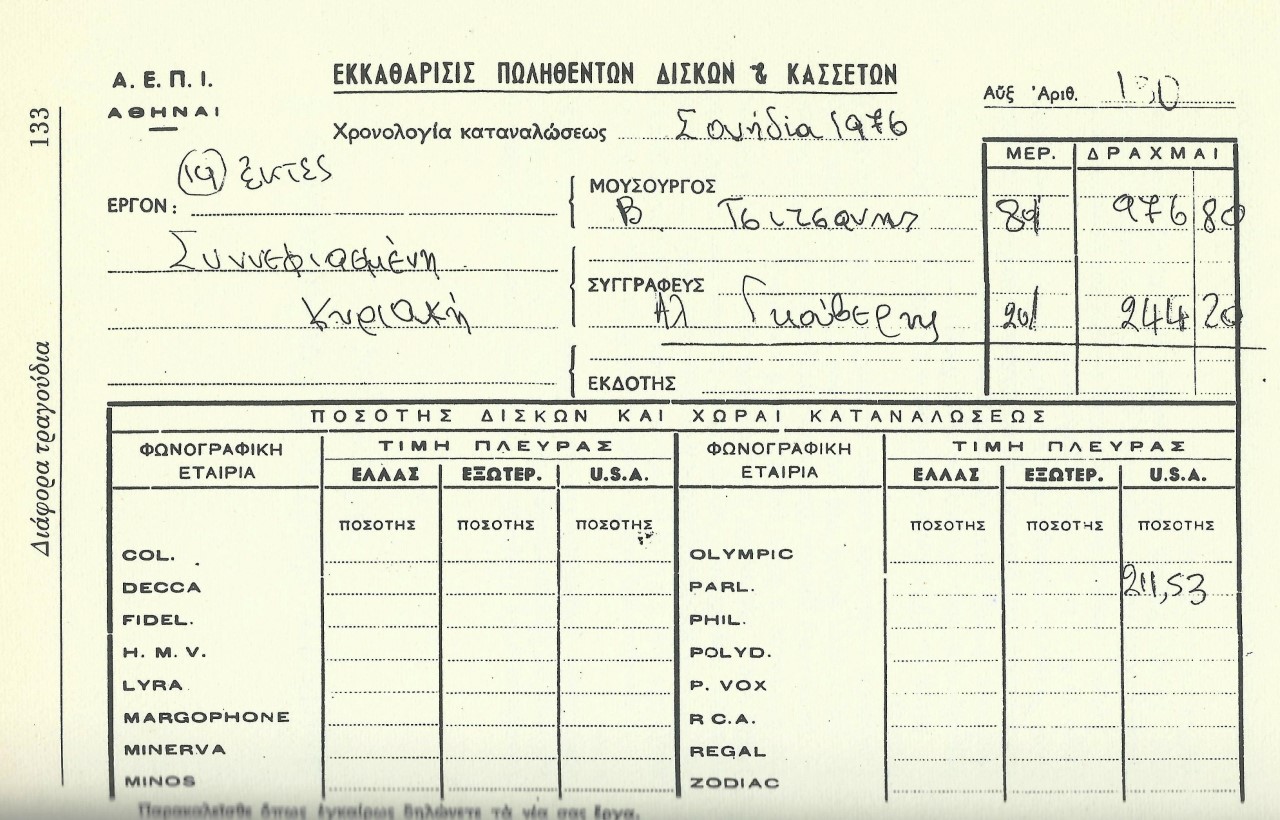 133
Διάφορα τραγούδια
Α. Ε. Π. Ι.
ΑΘΗΝΑΙ
ΕΚΚΑΘΑΡΙΣΙΣ ΠΩΛΗΘΕΝΤΩΝ ΔΙΣΚΩΝ & ΚΑΣΣΕΤΩΝ
Αὔξ Ἀριθ.
Χρονολογία καταναλώσεως Σουηδία 1976
ΕΡΓΟΝ:
Συννεφιασμένη
Κυριακή
ΜΟΥΣΟΥΡΓΟΣ
Β Τσιτσανης
ΣΥΓΓΡΑΦΕΥΣ
Αλ Γκούβερης
ΕΚΔΟΤΗΣ
ΜΕΡ. ΔΡΑΧΜΑΙ
976 80
20 244 20
ΠΟΣΟΤΗΣ ΔΙΣΚΩΝ ΚΑΙ ΧΩΡΑΙ ΚΑΤΑΝΑΛΩΣΕΩΣ
ΦΩΝΟΓΡΑΦΙΚΗ ΕΤΑΙΡΙΑ
ΤΙΜΗ ΠΛΕΥΡΑΣ
ΕΛΛΑΣ ΕΞΩΤΕΡ. U.S.A.
ΠΟΣΟΤΗΣ ΠΟΣΟΤΗΣ ΠΟΣΟΤΗΣ
COL.
DECCA
FIDEL.
H. M. V.
LYRA
MARGOPHONE
MINERVA
MINOS
ΦΩΝΟΓΡΑΦΙΚΗ ΕΤΑΙΡΙΑ
ΤΙΜΗ ΠΛΕΥΡΑΣ
ΕΛΛΑΣ ΕΞΩΤΕΡ. U.S.A.
ΠΟΣΟΤΗΣ ΠΟΣΟΤΗΣ ΠΟΣΟΤΗΣ
OLYMPIC
PARL. 211,53
PHIL.
POLYD.
P. VOX
R C.A.
REGAL
ZODIAC
Παρακαλεῖσθε ὅπως ἐγκαίρως δηλώνετε τὰ νέα σας ἔργα.